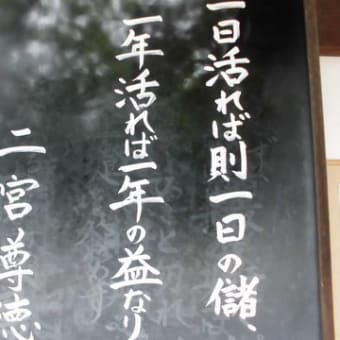 一日活れば則一日の儲、
一年活れば一年の益なり
二宮尊徳